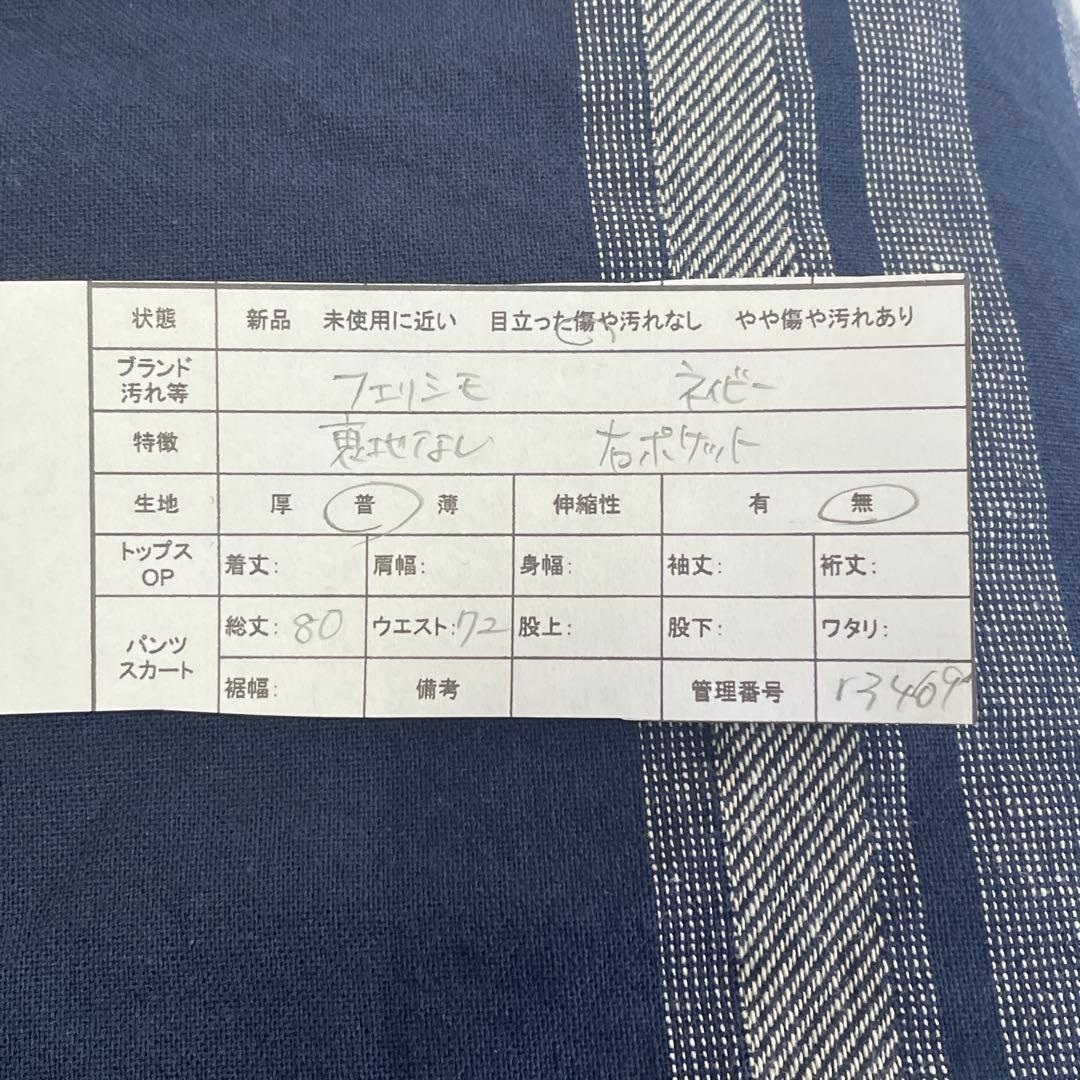 状態 新品 未使用に近い 目立った傷や汚れなし やや傷や汚れあり
ブランド
汚れ等 フェリシモ ネイビー
特徴 裏地なし 右ポケット
生地 厚 普 薄 伸縮性 有 無
トップス
OP 着丈: 肩幅: 身幅: 袖丈: 裄丈:
パンツ
スカート 総丈: 80 ウエスト: 72 股上: 股下: ワタリ:
裾幅: 備考 管理番号 r3469